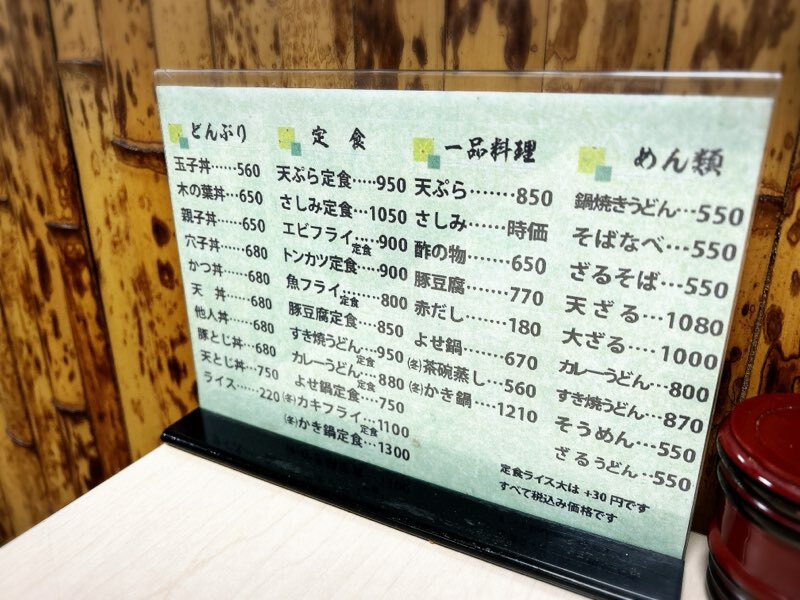 どんぶり
玉子丼……560
木の葉丼…650
親子丼……650
穴子丼……680
かつ丼……680
天　丼……680
他人丼……680
豚とじ丼…680
天とじ丼…750
ライス……220
定　食
天ぷら定食……950
さしみ定食…1050
エビフライ定食……900
トンカツ定食…900
魚フライ定食………800
豚豆腐定食……850
すき焼うどん定食…950
カレーうどん定食…880
よせ鍋定食……750
㊤カキフライ定食…1100
㊤かき鍋定食…1300
一品料理
天ぷら………850
さしみ……時価
酢の物………650
豚豆腐………770
赤だし………180
よせ鍋………670
(冬)茶碗蒸し…560
(冬)かき鍋……1210
めん類
鍋焼きうどん…550
そばなべ…550
ざるそば…550
天ざる……1080
大ざる……1000
カレーうどん…800
すき焼うどん…870
そうめん…550
ざるうどん…550
定食ライス大は +30円です
すべて税込み価格です